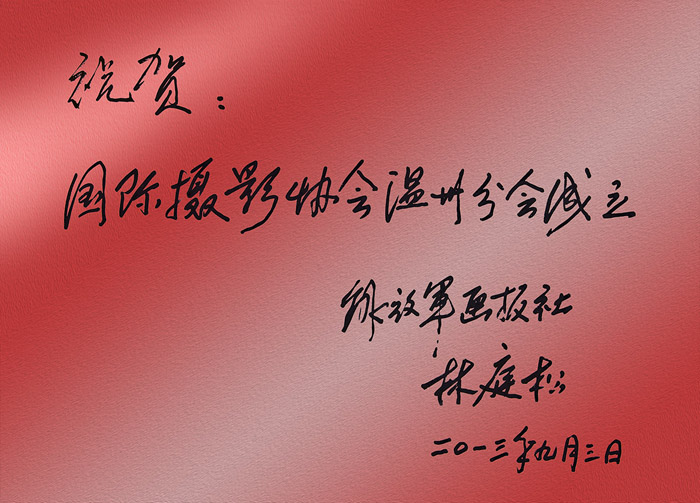 祝贺：
国际摄影协会温州分会成立
解放軍画报社
林庭松
二〇一三年九月三日